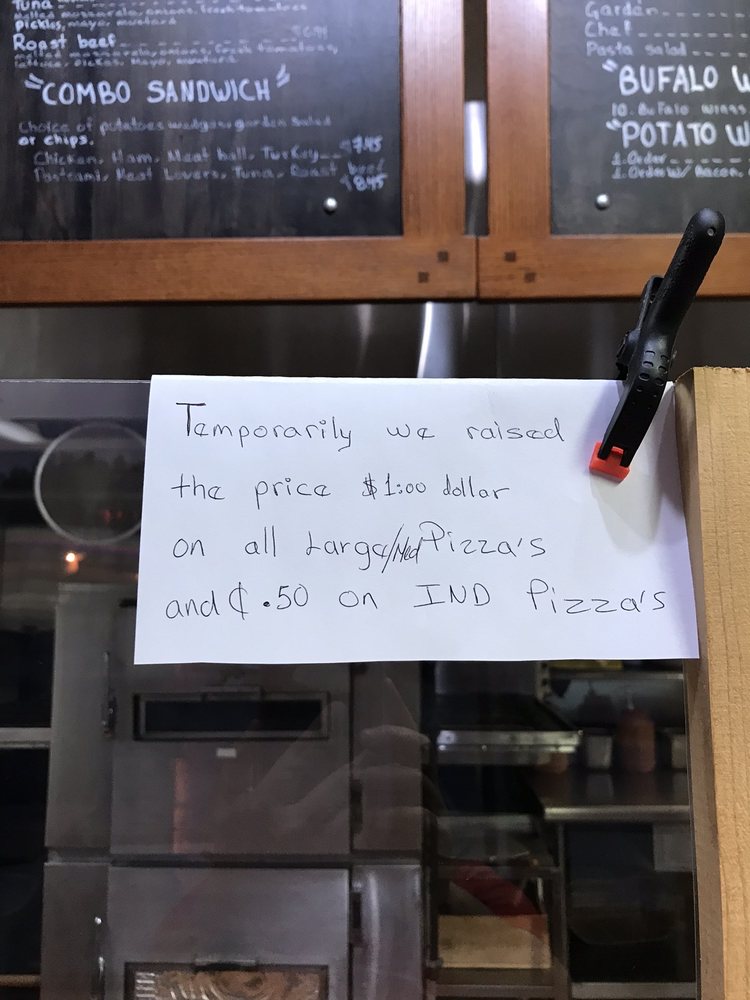 Tuna
melted mozzarella, onions, fresh tomatoes
pickles, mayo, mustard
Roast beef
melted mozzarella, onions, fresh tomatoes,
lettuce, pickles, Mayo, mustard
"COMBO SANDWICH"
Choice of potatoes wedges, garden salad
or chips.
Chicken, Ham, Meat ball, Turkey $7.45
Pastrami, Meat Lovers, Tuna, Roast beef $8.45
Garden
Chef
Pasta salad
"BUFALO W
10. Bufalo wings
"POTATO W
1. Order
1. Order W/ Bacon
Temporarily we raised
the price $1:00 dollar
on all Large/Med Pizza's
and ¢.50 on IND Pizza's